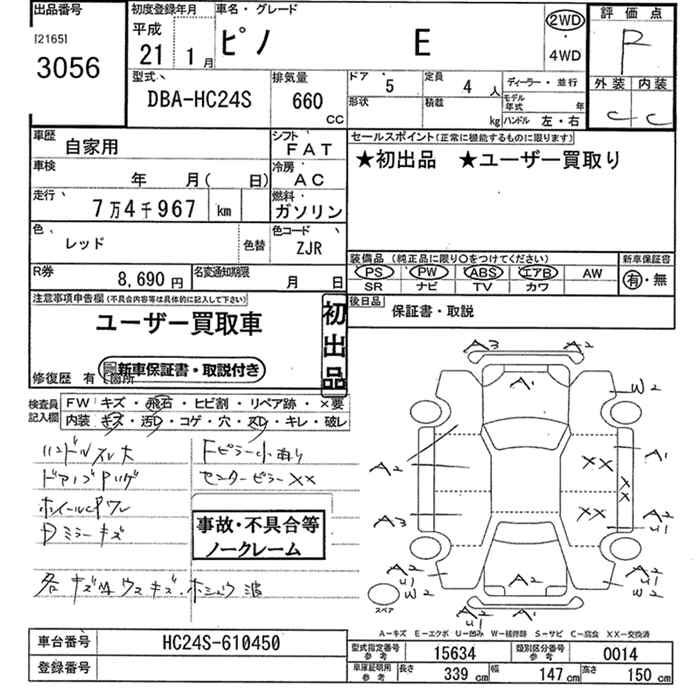 出品番号
[2165]
3056
初度登録年月
平成
21 1 月
車名・グレード
ピノ E
2WD
・
4WD
評価点
R
外装 内装
C C
型式
DBA-HC24S
排気量
660
CC
ドア 5
定員 4 人
形状
積載 kg
ディーラー・並行
モデル年式 年
ハンドル 左・右
車歴 自家用
シフト FAT
車検 年 月( 日)
冷房 AC
走行 7万4千967 km
燃料 ガソリン
色 レッド 色替
色コード ZJR
R券 8,690 円
名変通知期限 月 日
セールスポイント(正常に機能するものに限ります)
★初出品 ★ユーザー買取り
装備品 (純正品に限り○をつけてください)
PS PW ABS エアB AW
SR ナビ TV カワ
新車保証書
有・無
後日品 保証書・取説
注意事項申告欄(不具合内容等は具体的に記入して下さい)
ユーザー買取車
新車保証書・取説付き
修復歴 有 箇所
初出品
検査員記入欄
FW キズ・飛石・ヒビ割・リペア跡・×要
内装 キズ・汚レ・コゲ・穴・スレ・キレ・破レ
ハンドルスレ大
Fピラー小有り
センターピラーXX
Dミラーキズ
事故・不具合等
ノークレーム
A3 A2
A1
W2
A2 A1
XX
XX
A3 XX A2
U1
A2
U1
W2
A2
A2
U1
A2
U1
スペア
A-キズ E-エクボ U-凹み W-補修跡 S-サビ C-腐食 XX-交換済
車台番号 HC24S-610450
登録番号
型式指定番号 参考 15634
類別区分番号 参考 0014
車庫証明用 参考 長さ 339 cm 幅 147 cm 高さ 150 cm